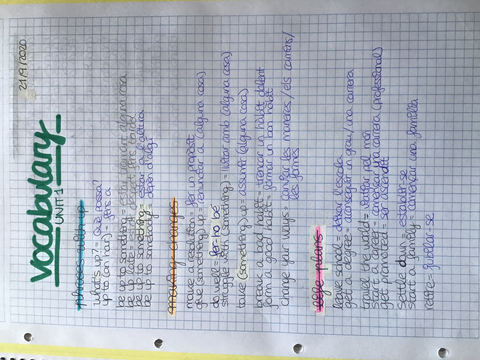 21/9/2020
Vocabulary
UNIT 1
phrases with up
what's up? = Què passa?
up to (an hour) = fins a
be up to something = estar tramant alguna cosa
be up late =
be up to somebody =
making changes
make a resolution = fer un propòsit
give (something) up = renunciar a (alguna cosa)
do well = fer-ho bé
struggle with (something) = lluitar amb (alguna cosa)
take (something) up = assumir (alguna cosa)
break a bad habit = trencar un hàbit dolent
form a good habit = formar un bon hàbit
change your ways = canviar les maneres / els camins /
les formes
life plans
leave school = deixar l'escola
get a degree = aconseguir un grau / una carrera
travel the world = viatjar pel món
start a career = començar una carrera (professional)
get promoted = ser ascendit
settle down = establir-se
start a family = començar una família
retire = jubilar-se